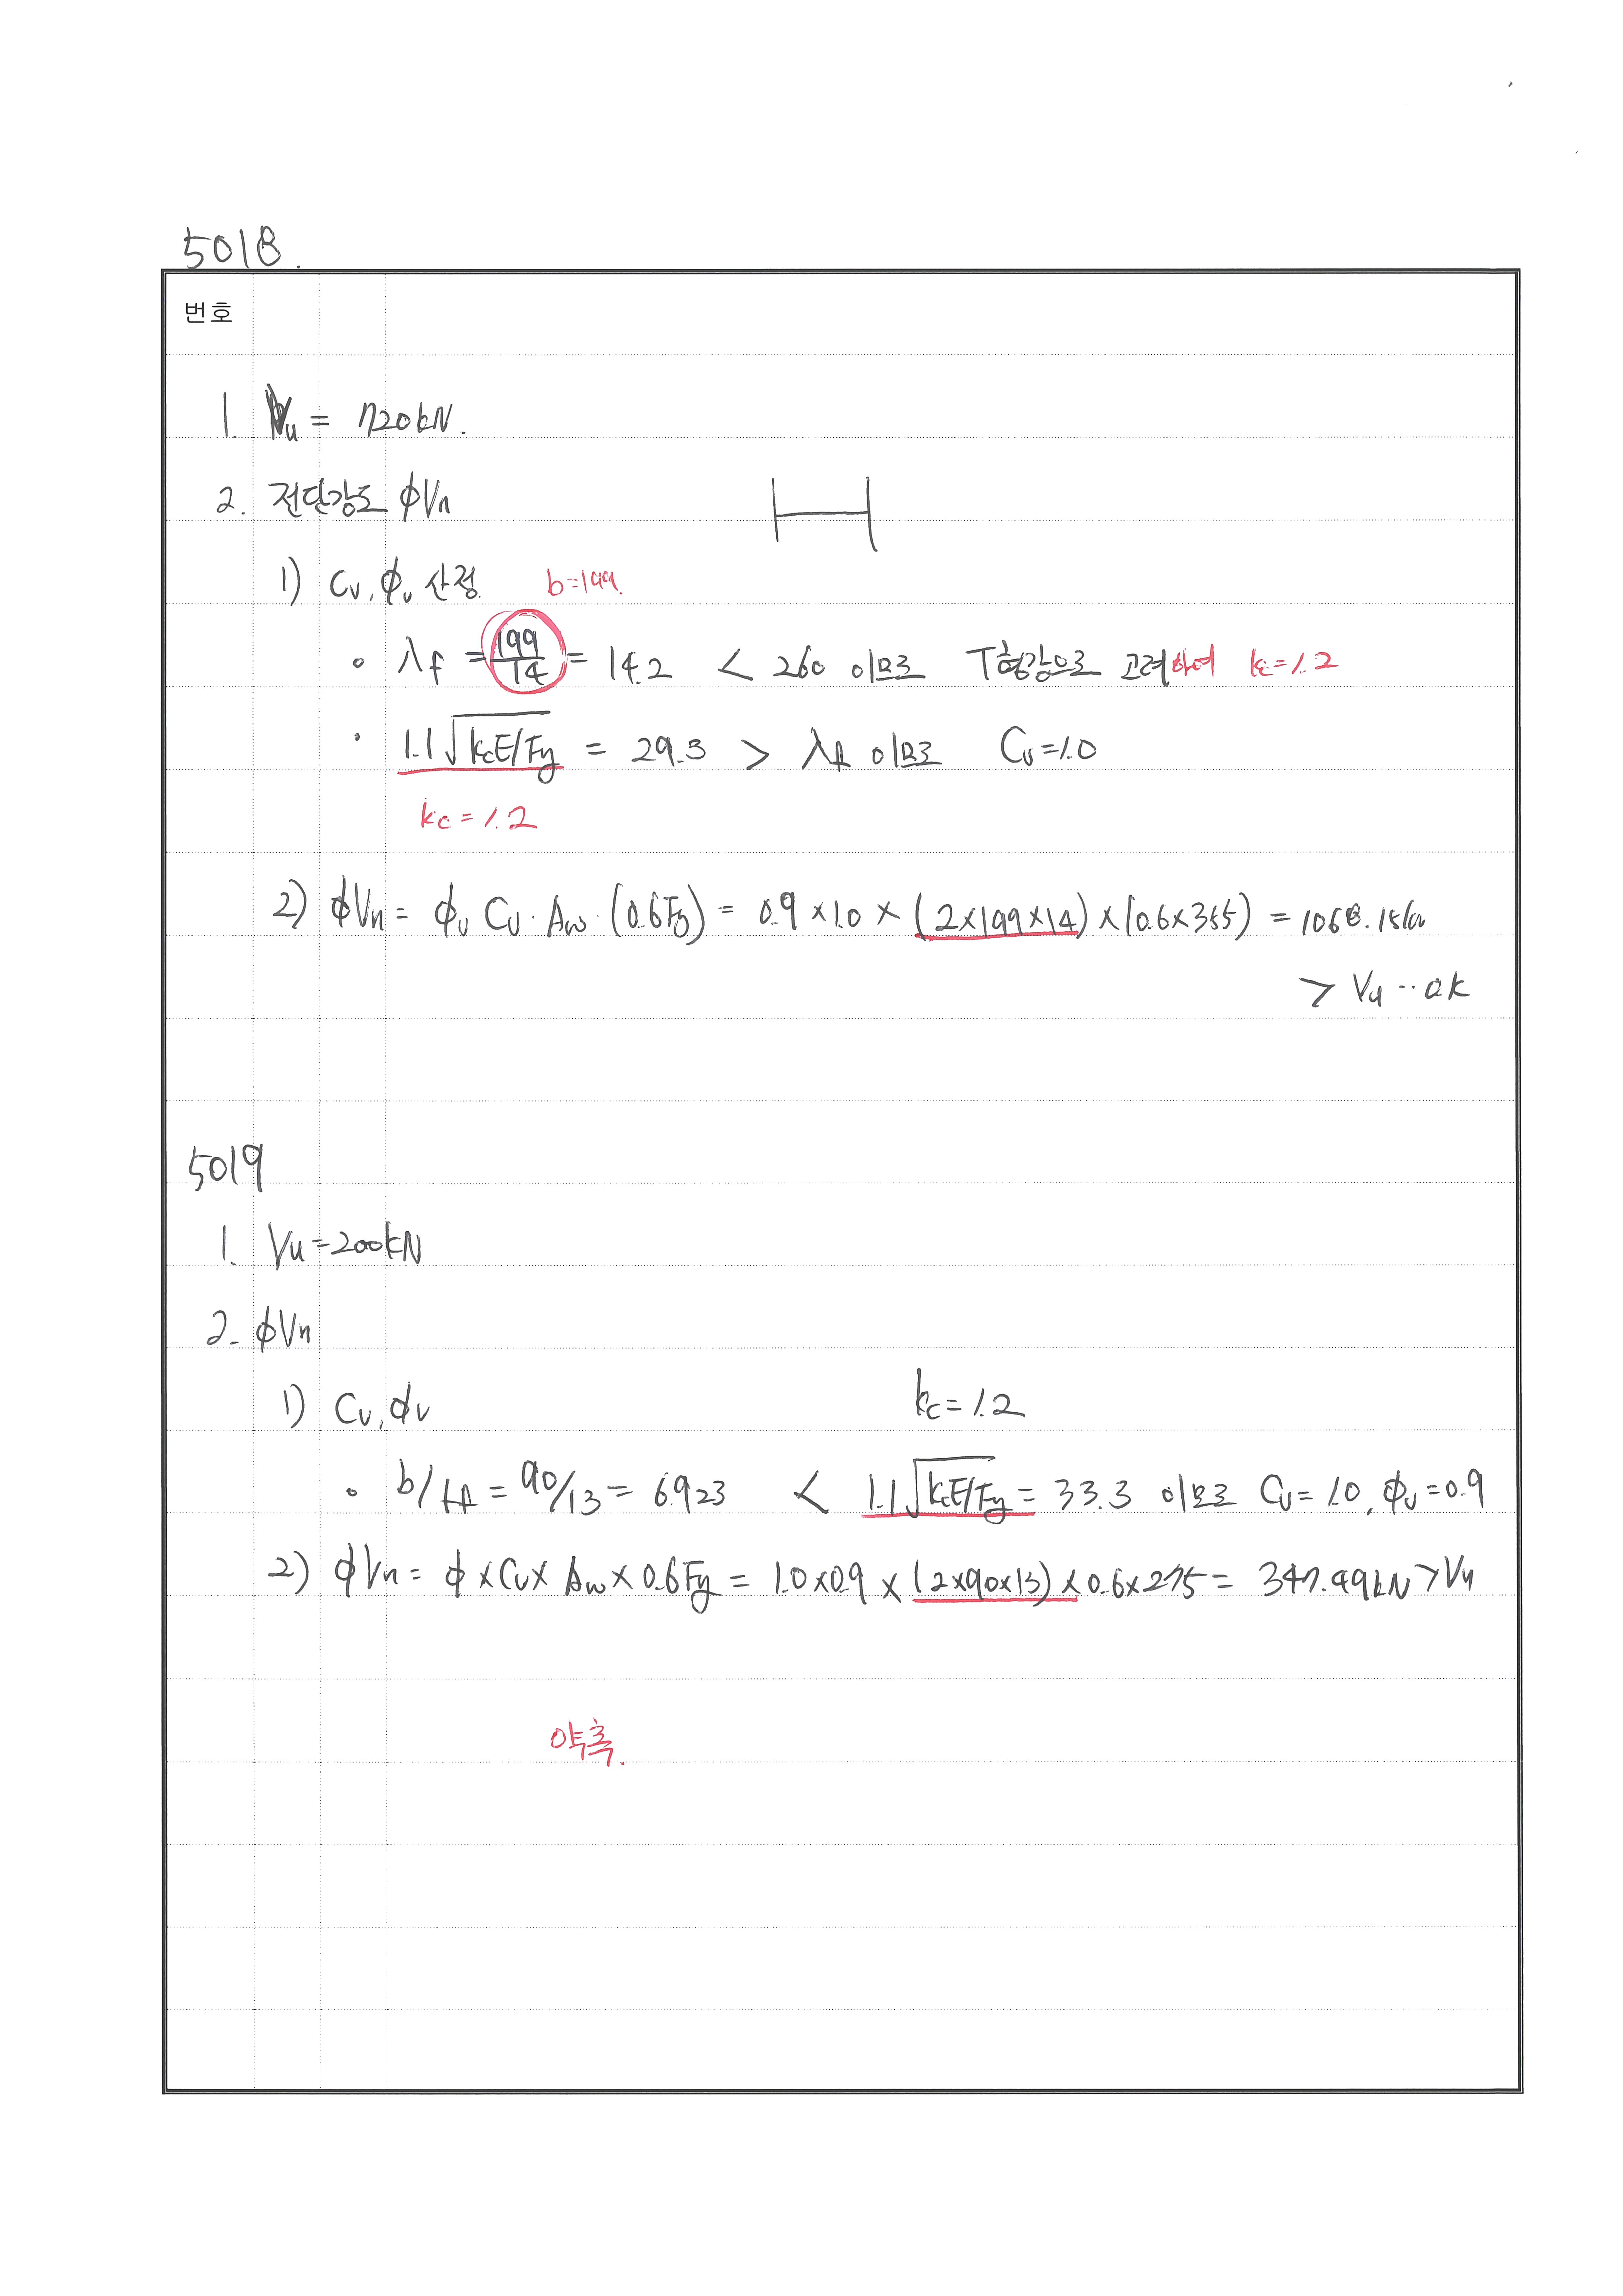 5018.
번호
1. Vu = 720kN.
2. 전단강도 ϕVn
1) Cv, ϕv 산정 b=199.
∘ λf = 199/14 = 14.2 < 260 이므로 T형강으로 고려하여 kc=1.2
• 1.1√kcE/Fy = 29.3 > λf 이므로 Cv=1.0
kc = 1.2
2) ϕVn = ϕv Cv · Aw · (0.6Fy) = 0.9 × 1.0 × (2×199×14) × (0.6×355) = 1068.15kN
> Vu ·· ok
5019
1. Vu=200kN
2. ϕVn
1) Cv, ϕv kc=1.2
∘ b/tf = 90/13 = 6.923 < 1.1√kcE/Fy = 33.3 이므로 Cv=1.0, ϕv=0.9
2) ϕVn = ϕ×Cv× Aw×0.6Fy = 1.0×0.9 × (2×90×13) ×0.6×275 = 347.49kN >Vu
약축.